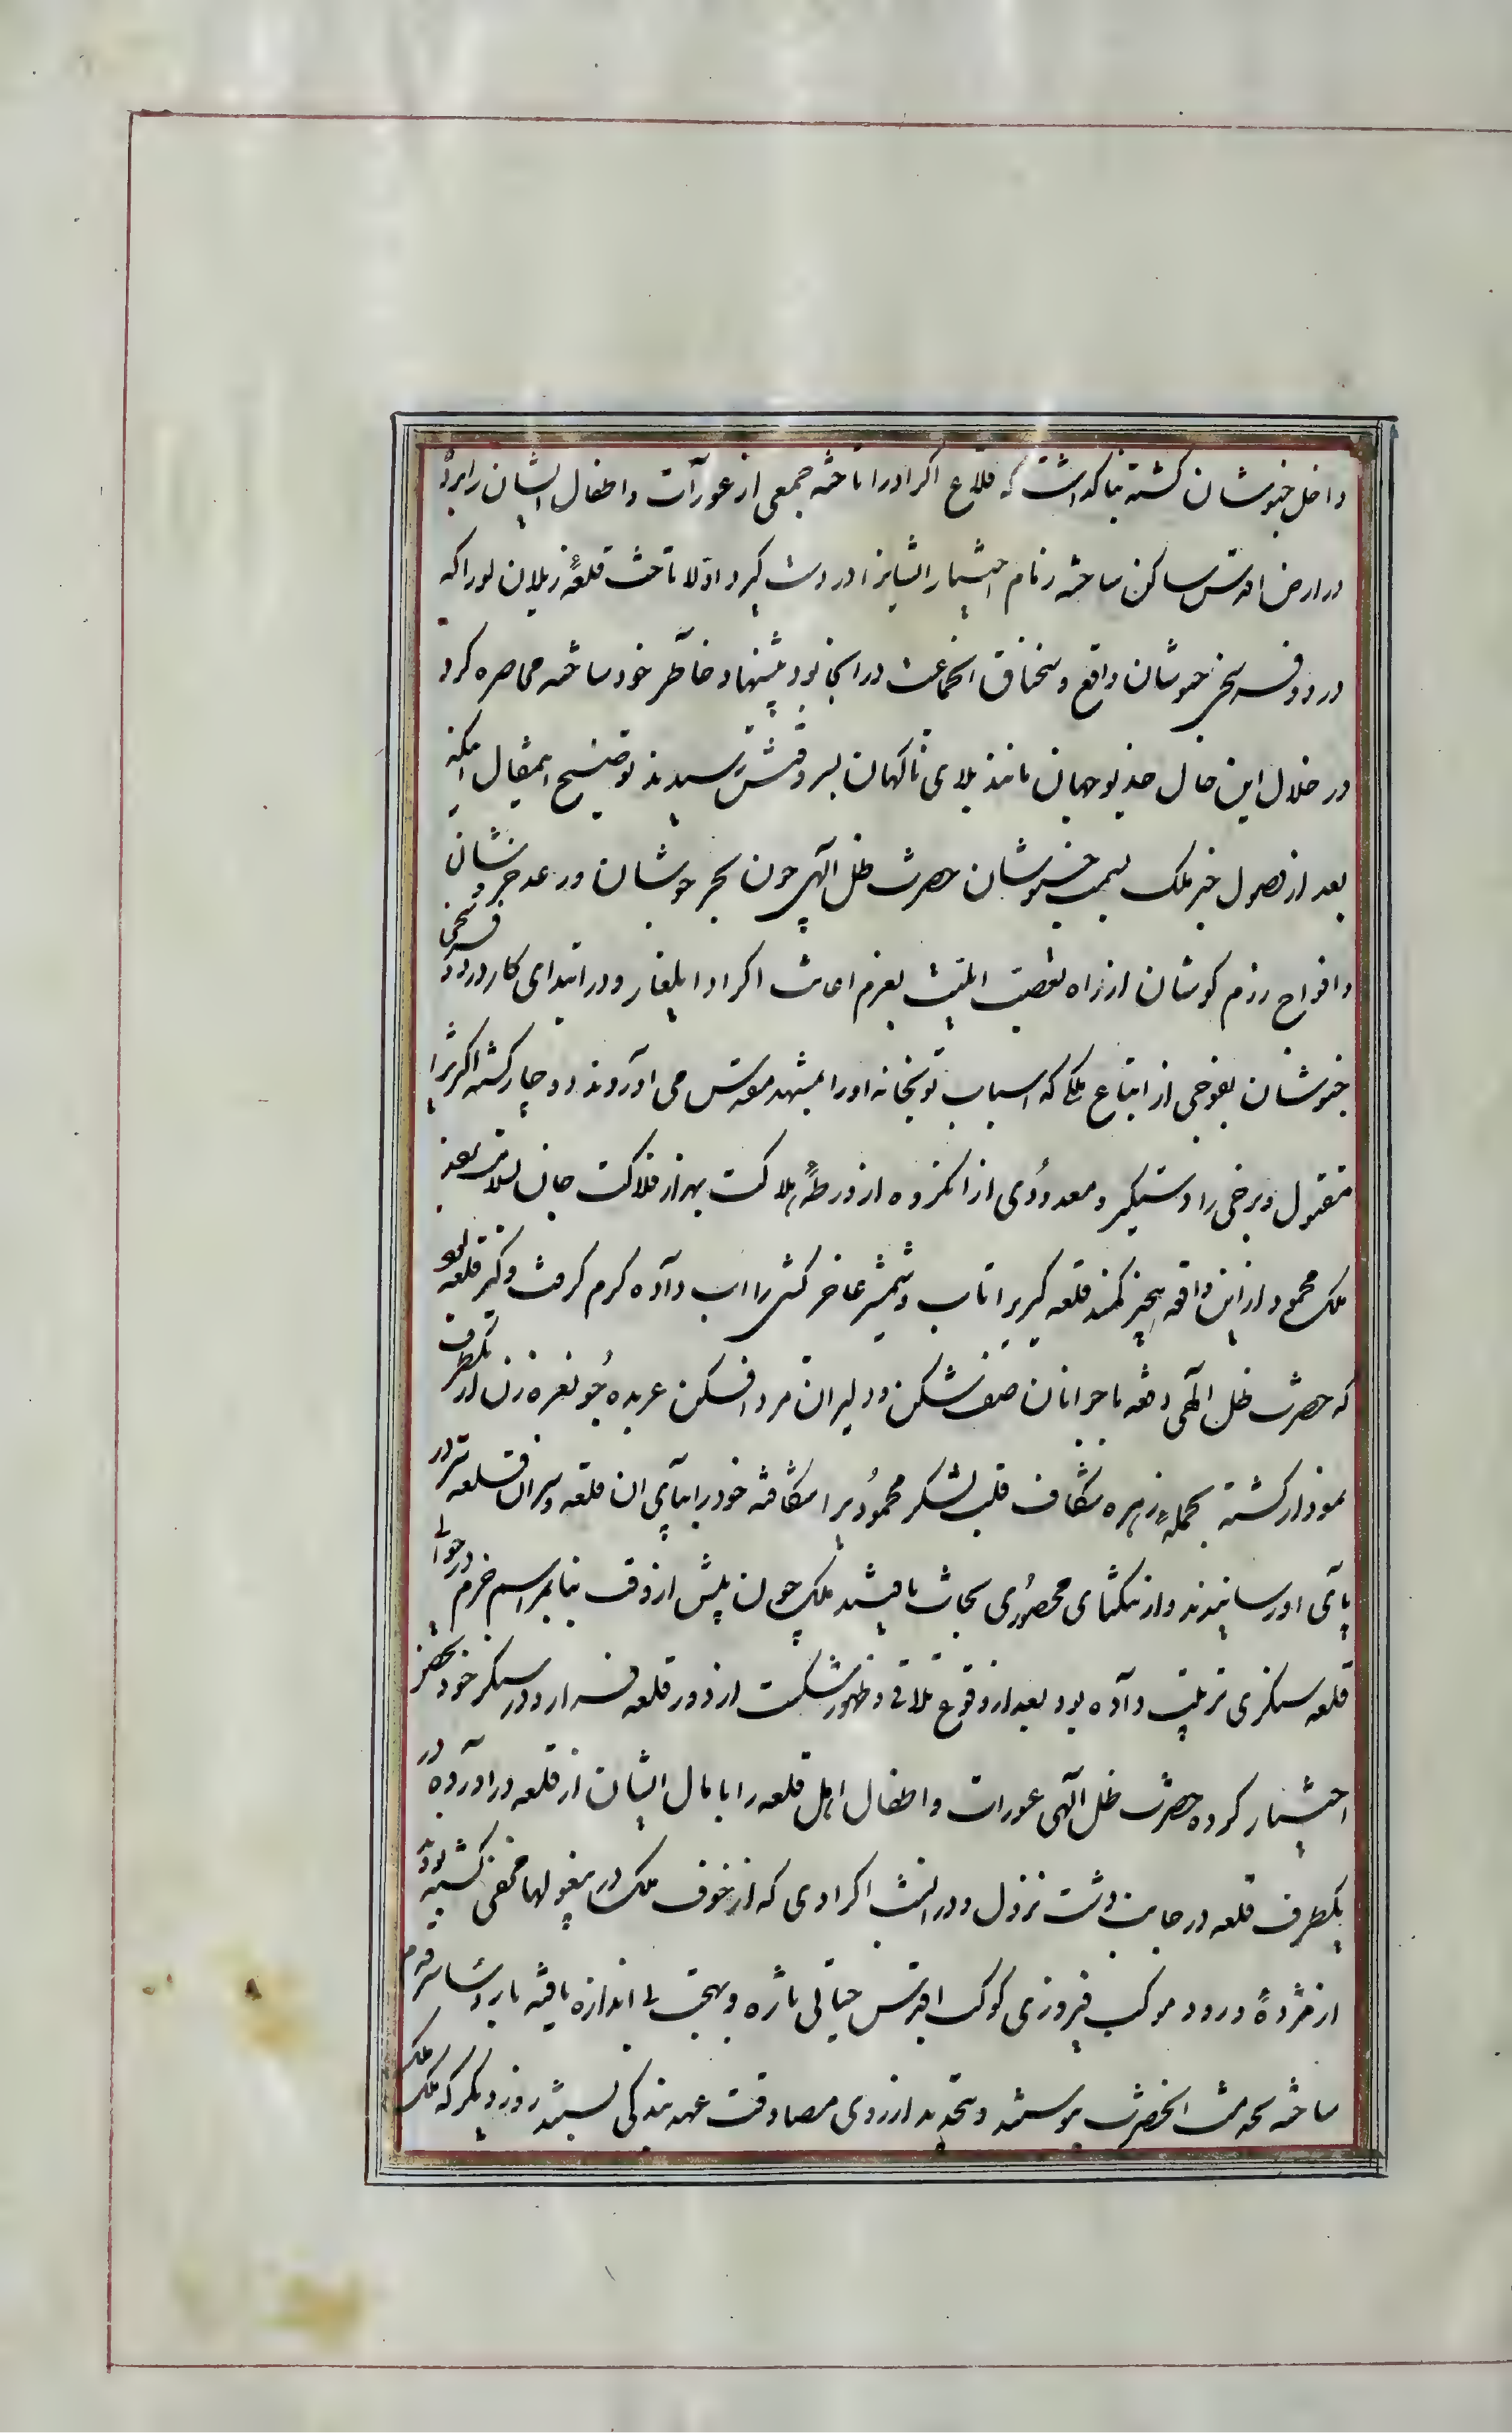 داخل خبوشان کشته بنا کداشت که قلاع اکراد را تاخته جمعی از عورات و اطفال ایشان را برده
در ارض اقدس ساکن ساخته زمام اختیار ایشانرا در دست کیرد اولا تاخت قلعهٔ زیلان لو را که
در دو فرسخی خبوشان واقع و سخناق انجماعت در انجا بود پیشنهاد خاطر خود ساخته محاصره کرد
در خلال این حال خدیو جهان مانند بلای ناکهان بسر وقتش رسیدند توضیح اینمقال انکه
بعد از وصول خبر ملک بسمت خبوشان حضرت ظل الهی چون بحر جوشان و رعد خروشان
و افواج رزم کوشان از راه تعصب ایلیت بعزم اعانت اکراد ایلغار و در ابتدای کار در دو فرسخی
خبوشان بفوجی از اتباع ملک که اسباب توپخانه او را بمشهد مقدس می آوردند دوچار کشته اکثر را
مقتول و برخی را دستکیر و معدودی از انکروه از ورطهٔ هلاکت بهزار فلاکت جان بسلامت بردند
ملک محمود از این واقعه بیخبر کمند قلعه کیری را تاب و شمشیر عاجز کشی را اب داده کرم کرفت و کیر قلعه بود
که حضرت ظل الهی دفعه با جوانان صف شکن و دلیران مرد افکن عربده جو نعره زن از یکطرف
نمودار کشته بحملهٔ زهره شکاف قلب لشکر محمودی را شکافته خود را بپای ان قلعه و سران قلعه را در
پای او رسانیدند و از تنکنای محصوری نجات یافتند ملک چون پیش از وقت بنابر اسم حزم در حوالی
قلعه سنکری ترتیب داده بود بعد از وقوع تلاقی و ظهور شکست از دور قلعه فرار و در سنکر خود تحصن
اختیار کرده حضرت ظل الهی عورات و اطفال اهل قلعه را با مال ایشان از قلعه در اورده در
یکطرف قلعه در جانب دشت نزول و در انشب اکرادی که از خوف ملک در بیغولها مخفی کشته بودند
از مژدهٔ ورود موکب فیروزی کوکب اقدس حیاتی تازه و بهجتی بی اندازه یافته
ساخته بخدمت انحضرت پیوستند و بتجدید از روی مصادقت عهد بندکی بستند روز دیکر که ملک
ملک